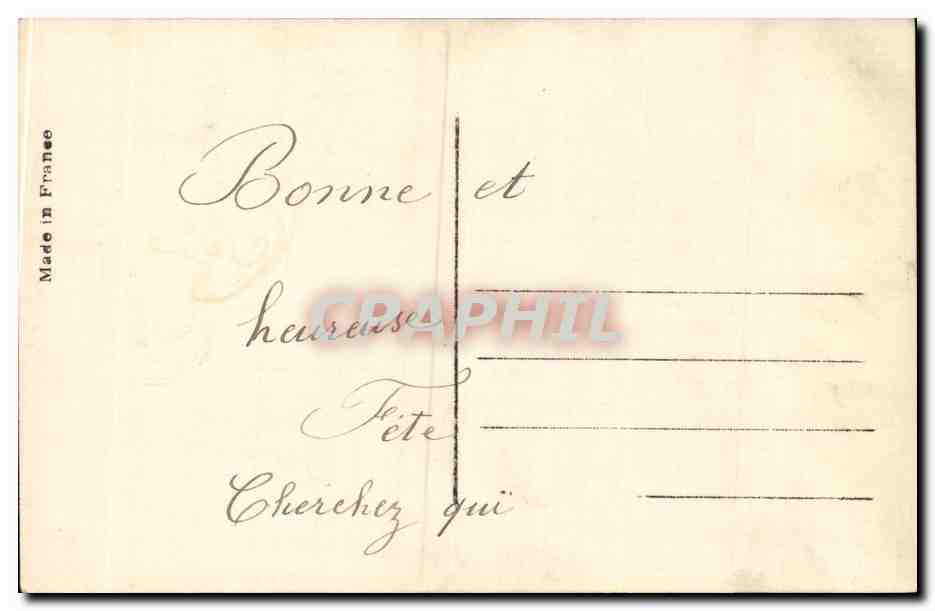 Made in France
Bonne et
heureuse
Fête
Cherchez qui
CPAPHIL